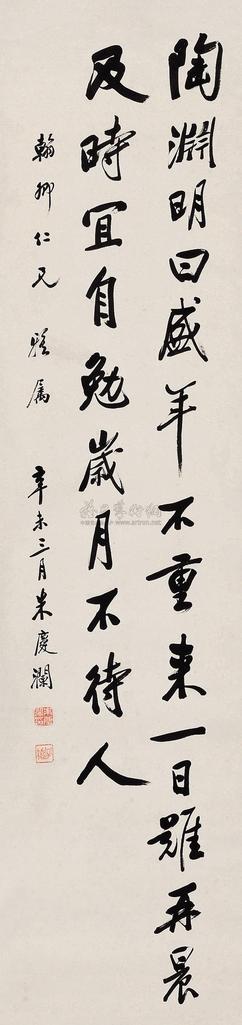 陶淵明曰盛年不重來一日難再晨
及時宜自勉歲月不待人
翰卿仁兄雅属
辛未三月朱慶瀾